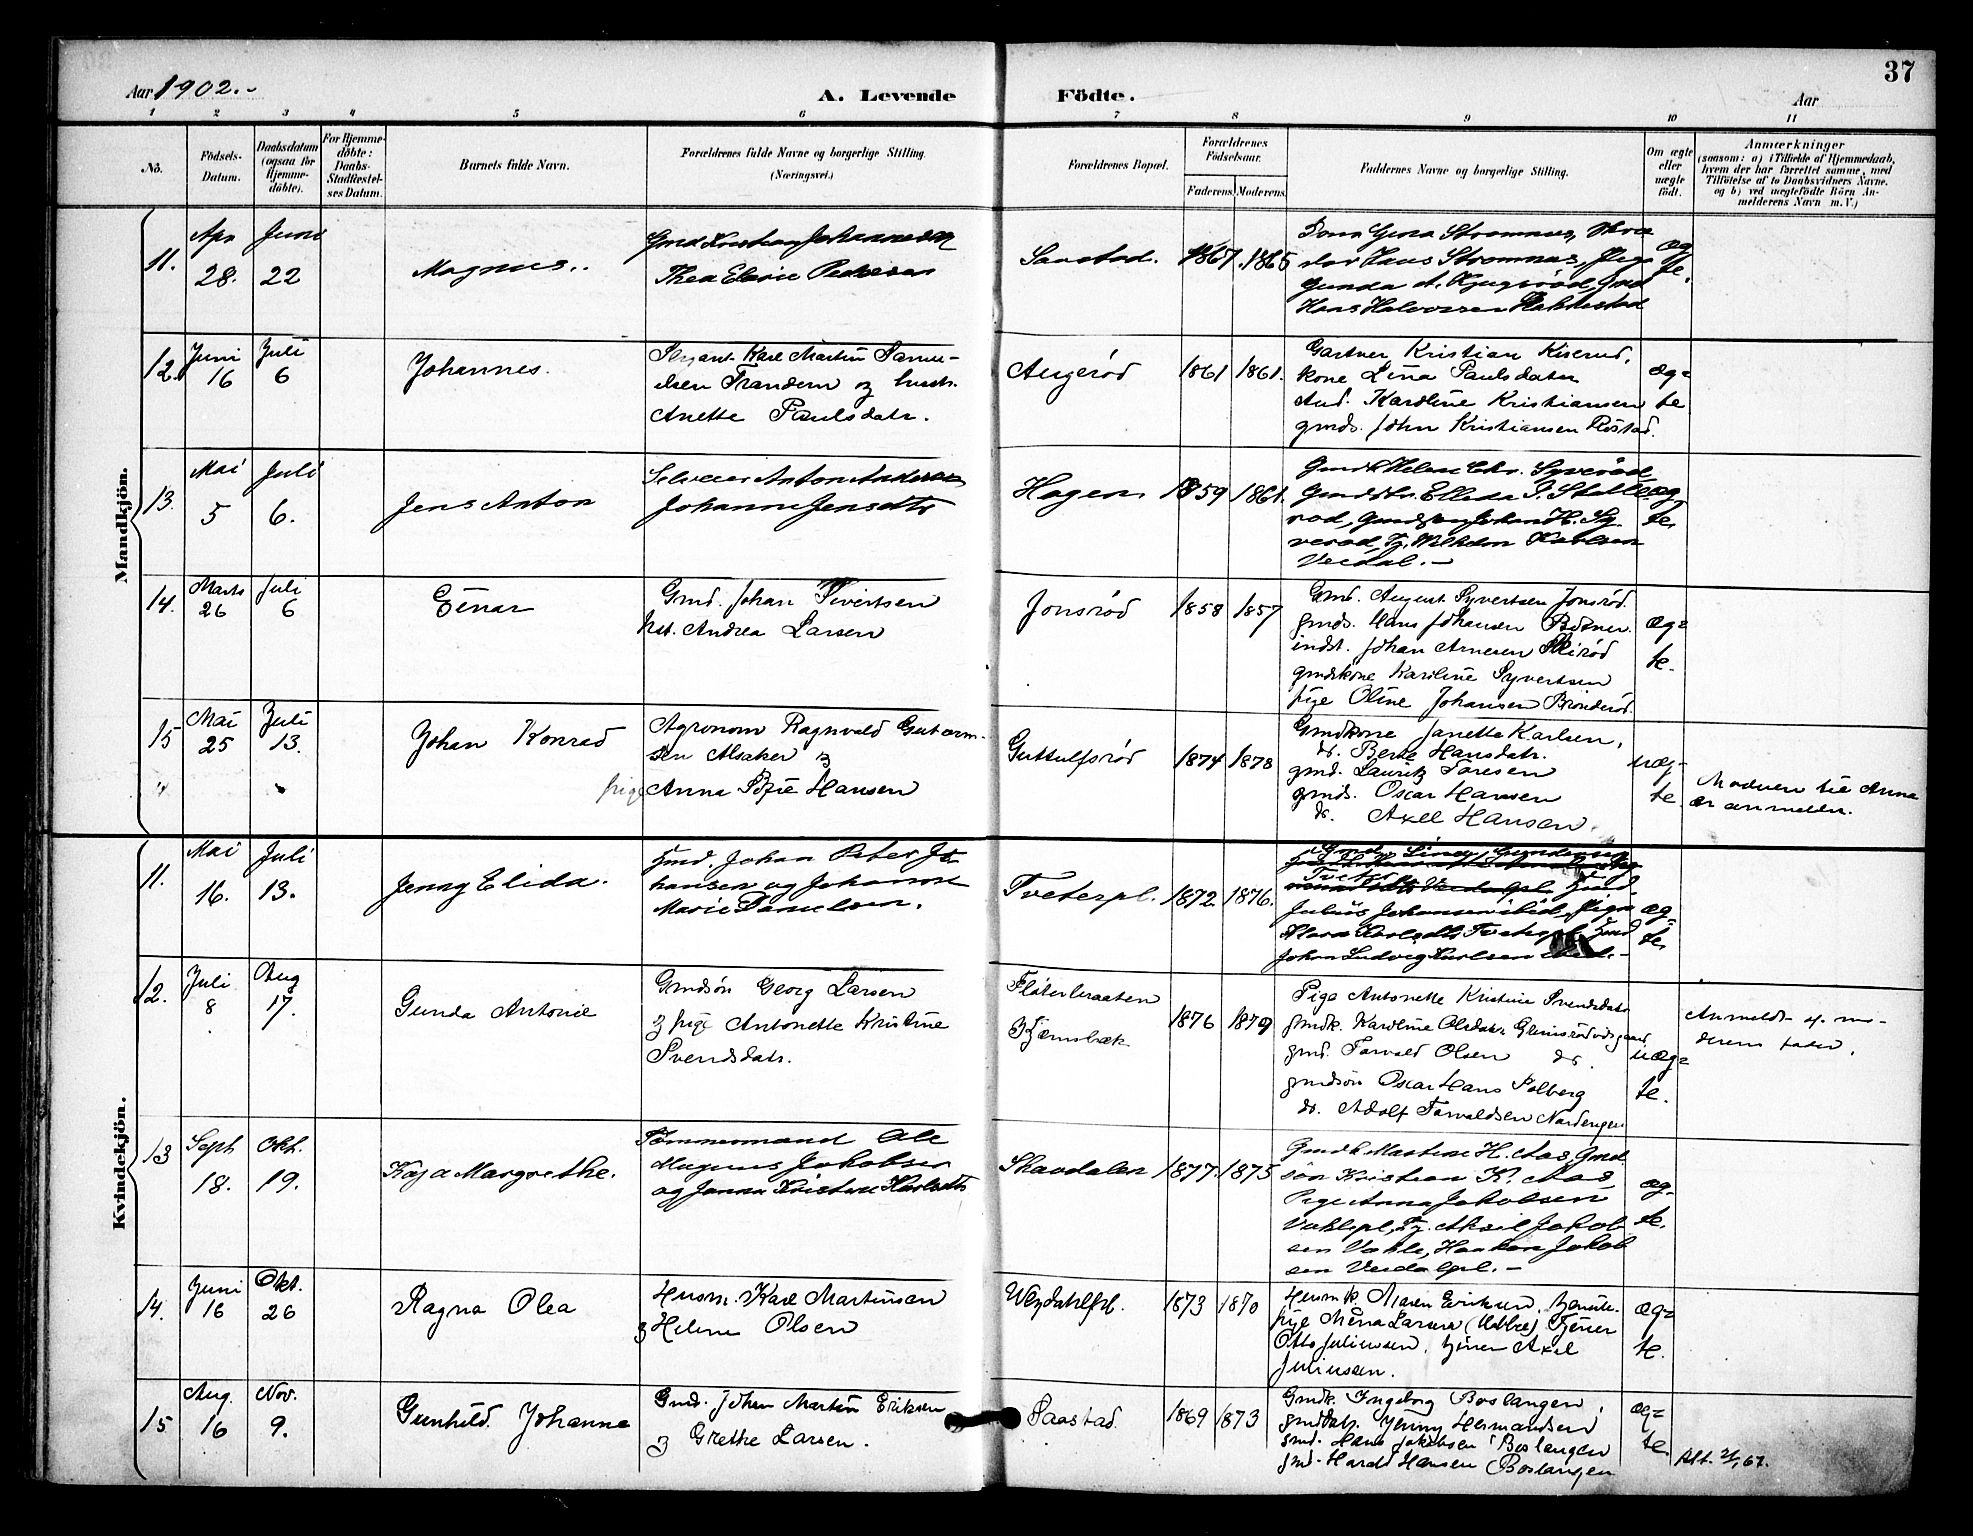 37
Aar 1902.-
A. Levende Födte.
Aar
1 2 3 4 5 6 7 8 9 10 11
No.
Födsels-Datum.
Daabsdatum (ogsaa for Hjemmedöbte).
For Hjemmedöbte: Daabs-Stadfæstelses Datum.
Barnets fulde Navn.
Forældrenes fulde Navne og borgerlige Stilling.
(Næringsvei.)
Forældrenes Bopæl.
Forældrenes Födselsaar.
Faderens. Moderens.
Faddernes Navne og borgerlige Stilling.
Om ægte eller uægte födt.
Anmærkninger
(saasom: a) i Tilfælde af Hjemmedaab,
hvem der har forrettet samme, med
Tilföielse af to Daabsvidners Navne,
og b) ved uægtefödte Börn An-
melderens Navn m. V.)
Mandkjön.
11.
Apr 28.
Juni 22
Magnus.
Gmd Kristian Johannesen
Thea Elvine Pedersen
Saastad.
1867. 1865
Hans Halvorsen Rakkestad
æg
te.
12.
Juni 16
Juli 6
Johannes.
Sergant Karl Martin Samu-
elsen Trandem og hustr.
Anette Paulsdatr.
Augerød
1861 1861.
Gartner Kristian Kiserud,
kone Lina Paulsdater
Karoline Kristiansen
gmds. John Kristiansen Rostad.
æg=
te
13.
Mai 5
Juli 6.
Jens Anton
Selveier Anton Andersen
Johanne Jensdtr
Hagen
1859 1861.
Syverød,
Gmdsøn Johan H. Sy-
verød, Tj. Wilhelm Karlsen
Verdal.-
æg
te.
14.
Marts 26
Juli 6
Einar
Gmd. Johan Sivertsen
hst. Andrea Larsen
Jonsrød
1858 1857
Gmd. August Syvertsen Jonsrød.
gmds. Hans Johansen Botner.
indst. Johan Arnesen
gmdskone Karoline Syvertsen
pige Oline Johansen Brønderød.
æg=
te.
15
Mai 25
Juli 13.
Johan Konrad
Agronom Ragnvald Gutorm-
sen Alsaker og
pige Anna Sofie Hansen
Guttulfsrød
1874 1878
Gmdkone Janette Karlsen,
do. Berte Hansdatr.
gmd. Lauritz Toresen
gmds. Oscar Hansen
do. Axell Hansen
uæg-
te.
Moderen til Anna
er anmelder.
Kvindekjön.
11.
Mai 16.
Juli 13.
Jenny Elida.
Gmd. Johan Peter Jo-
hansen og Johanne
Marie Samuelsen.
Tveterpl.
1872. 1876.
Julius Johansen ibid, Pige
Klara Karlsdtr Tveterpl. Gmd
Johan Ludvig Karlsen ibid.-
æg-
te.
12.
Juli 8
Aug 17.
Gunda Antonie
Gmdsön Georg Larsen
og pige Antonette Kristine
Svendsdatr.
Fløterbraaten
Kjærnsbæk
1876 1879
Pige Antonette Kristine Svendsdatr
gmdk. Karoline Olsdatr
gmd. Torvald Olsen do.
gmdsön Oscar Hans Solberg
do. Adolf Torvaldsen Nordengen
uæg=
te.
Anmeldt af mo-
derens fader.
13
Septr 18.
Okt. 19.
Kaja Margrethe.
Tømmermand Ole
Magnus Jakobsen
og Janna Kristine Karlsdtr
Skavdalen
1877. 1875
Gmdk Martine H. Aas, Gmd
søn Kristian K. Aas,
Pige Anna Jakobsen
Vahlepl, Tj. Aksil Jakob
sen Vahle, Haakon Jakob
sen Verdalpl.-
æg-
te.
14.
Juni 16
Okt. 26
Ragna Olea
Husm. Karl Martinsen
og Helene Olsen
Weydahlpl.
1873 1870
Husmk. Maren Eriksen, tjeneste-
pige Mina Larsen Tjener
Otto Juliussen, tjener Axel
Juliussen.
æg=
te.
15
Aug. 16
Nov. 9.
Gunhild Johanne
Gmd. Johan Martin Eriksen
og Grethe Larsen.
Saastad.
1869 1873
Gmdk. Ingeborg Boslangen,
gmddatr. Jenny Hermandsen
gmd. Hans Jakobsen Boslangen
gmd. Harald Hansen Boslangen
æg=
te.